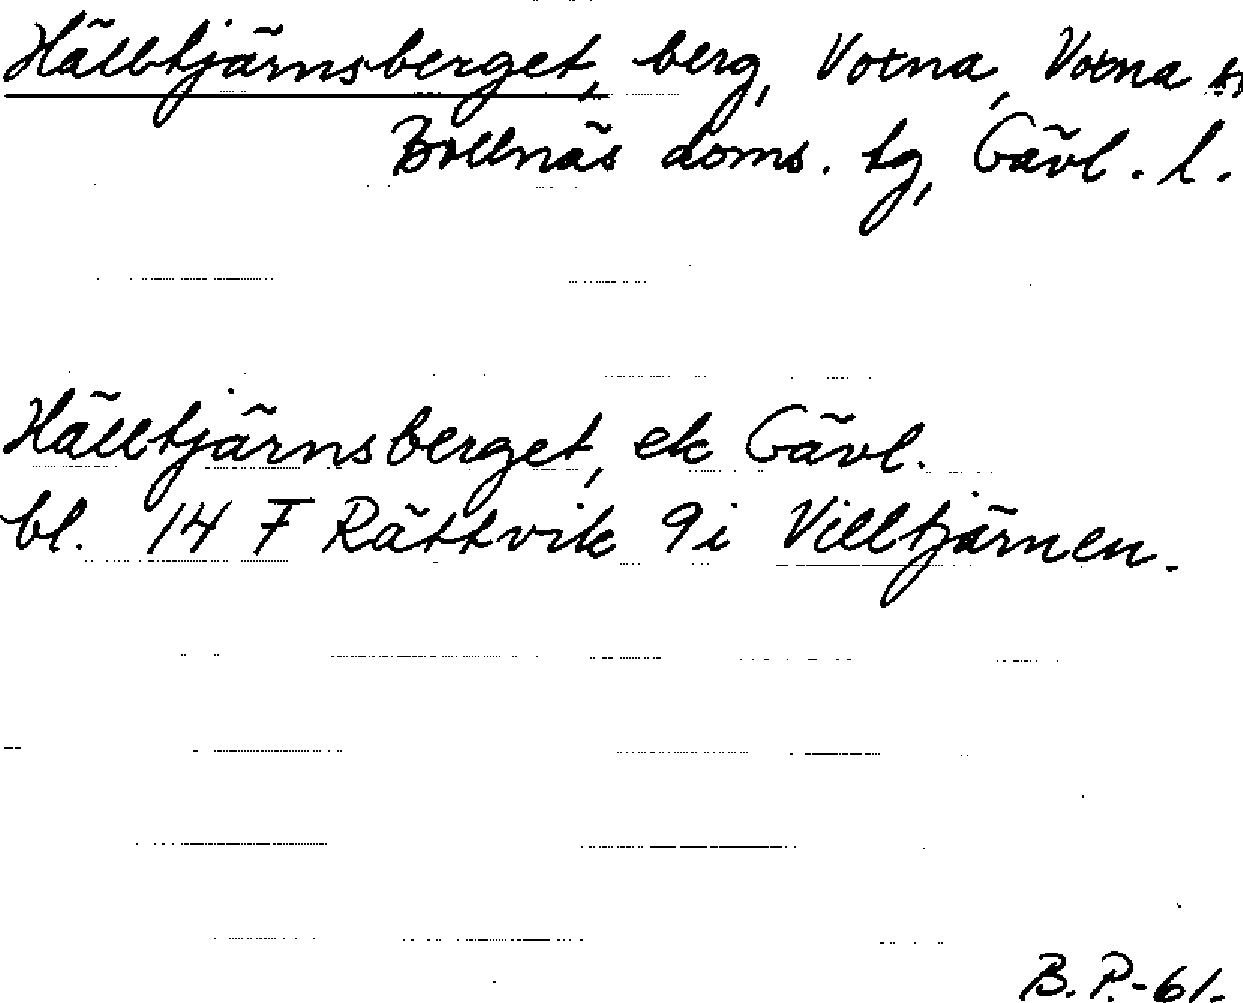 Hälltjärnsberget, berg, Voxna, Voxna
Bollnäs doms. tg, Gävl. l.
Hälltjärnsberget, ek Gävl.
bl. 14 F Rättvik 9i Villtjärnen.
B. P.-61.